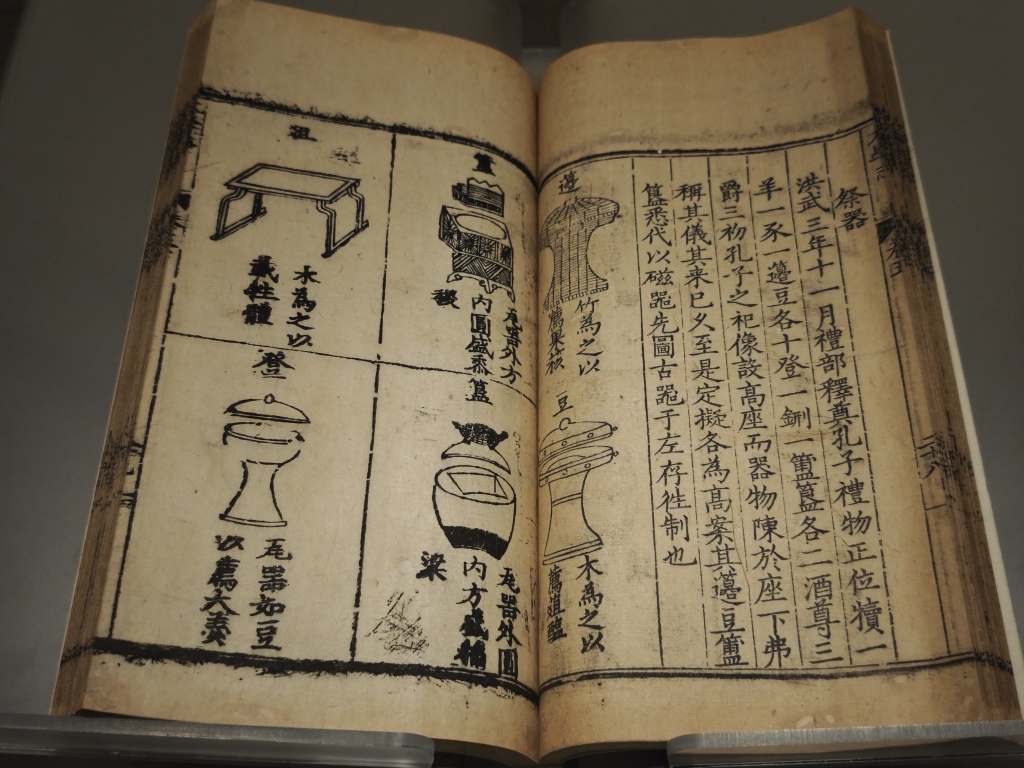 祭器
洪武三年十一月禮部釋奠孔子禮物正位犢一
羊一豕一籩豆各十登一鉶一簠簋各二酒尊三
爵三初孔子之祀像設高座而器物陳於座下弗
稱其儀其來已久至是定擬各為高案其籩豆簠
簋悉代以磁噐先圖古噐于左存徃制也
籩
竹為之以
薦果核
豆
木為之以
薦沮醢
簋
瓦器外方
內圓盛黍
稷
簠
瓦器外圓
內方盛稻
梁
俎
木為之以
載牲體
登
瓦器如豆
以薦大羹